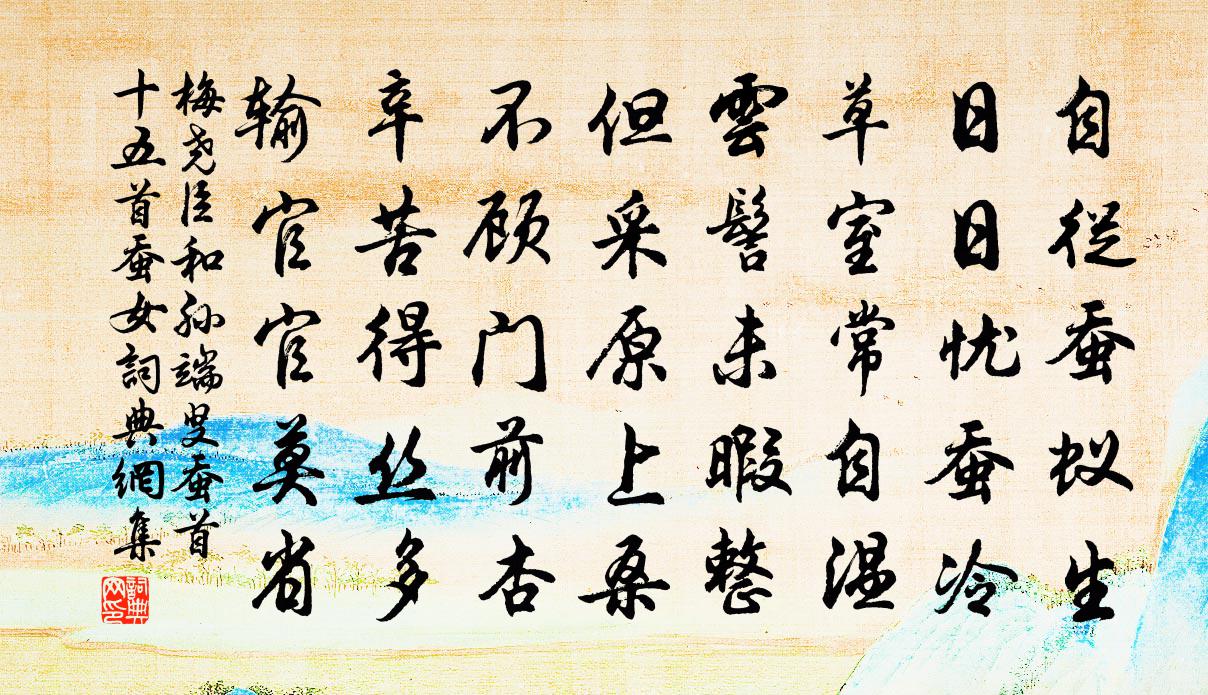 自従蚕蚁生
日日忧蚕冷
草室常自温
雲髻未暇整
但采原上桑
不顾门前杏
辛苦得丝多
输官官莫省
梅尧臣和孙端叟蚕首
十五首蚕女詞典網集
詞典
网印